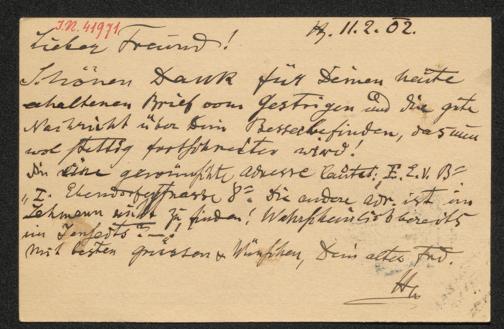 I.N. 41971
11.2.02.
Lieber Freund!
Schönen Dank für Deinen heute
erhaltenen Brief vom Gestrigen und die gute
Nachricht über Dein Besserbefinden, das nun
wol stettig fortschreiten wird!
Die eine gewünschte Adresse lautet: E. L. v. B
"I. Ebendorferstrasse 8". Die andere Adr. ist im
Lehmann nicht zu finden! Wahrscheinlich bereits
im Jenseits
Mit besten Grüssen & Wünschen, Dein alter Frd.